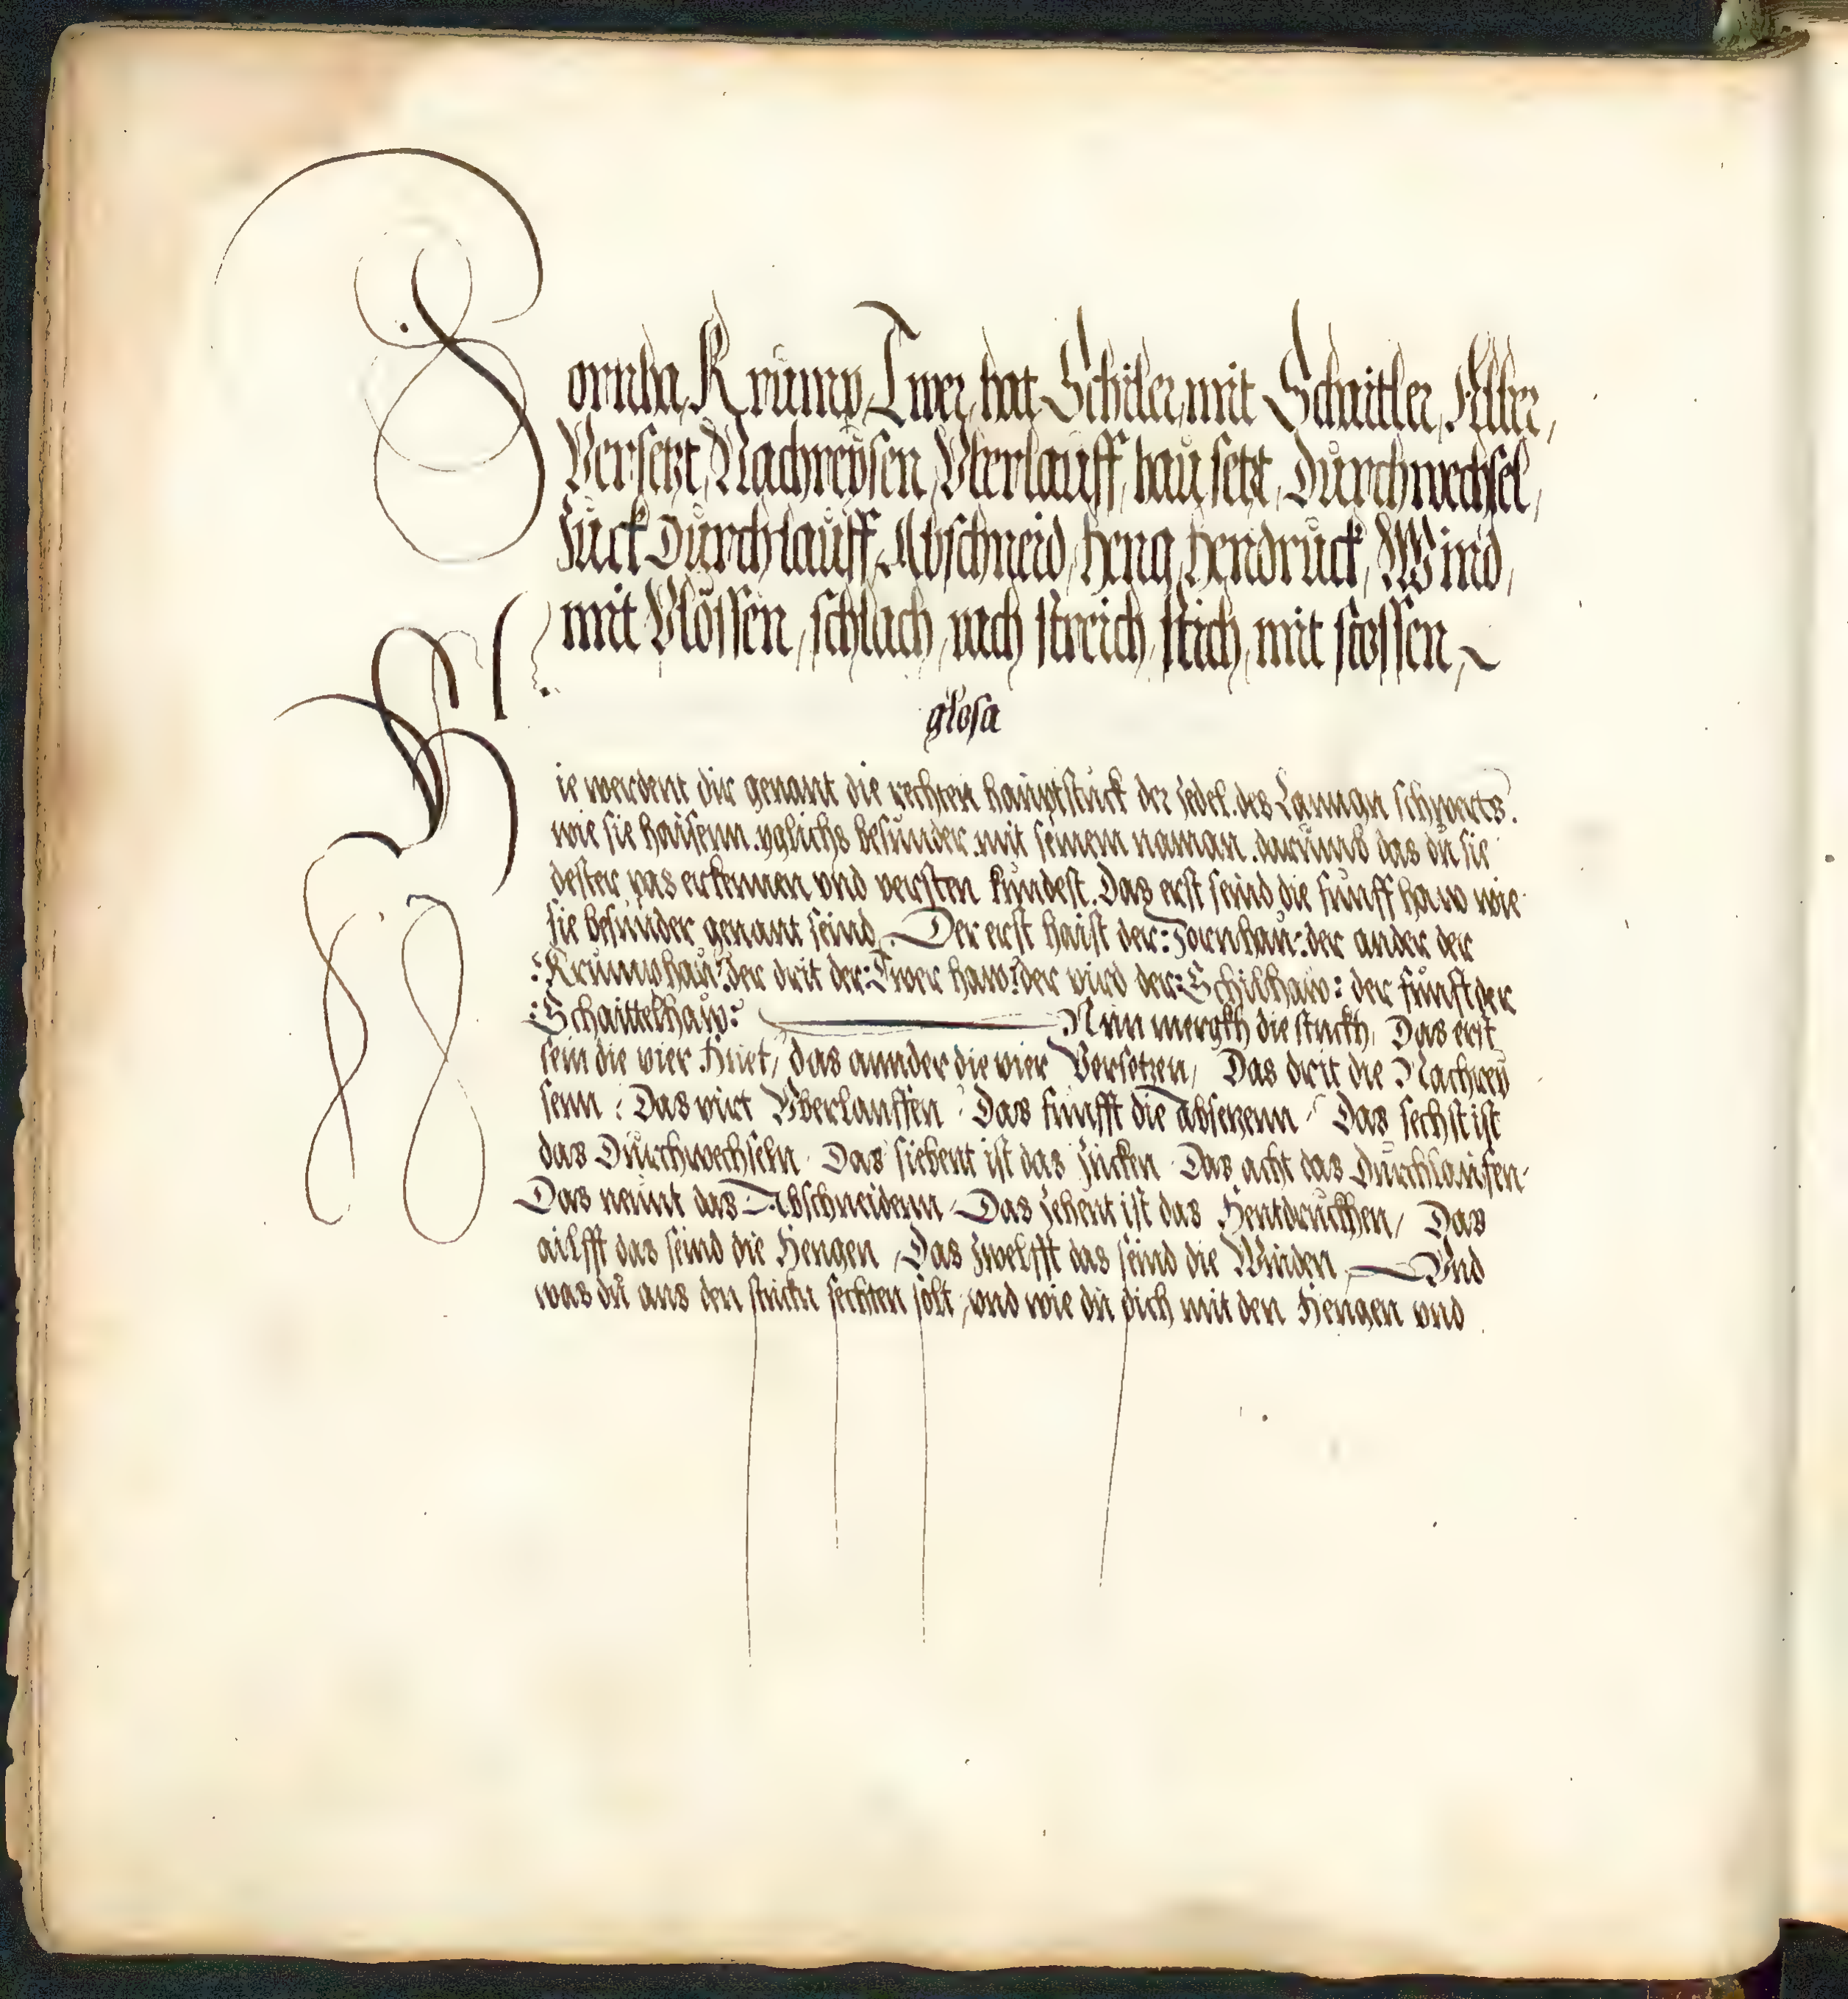 Zornha, Krùmp, Twer, hat Schiler, mit Schaitler, Alber,
Versetzt, Nachreysen, Vberlauff, hau setzt, Durchwechsel,
Zuck Durchlauff, Abschneid, Heng, Hendruck, Wind,
mit Plössen, schlach, vach streich, stich, mit stossen,
glosa
Hie werdent dir genant die rechten hauptstuck der zedel. des Lanngn schwerts.
wie sie haissenn. yglichs besunder. mit seinem naman. darumb das du sie
dester pas erkennen vnd versten kundest. Das erst seind die funff haw wie
sie besunder genant seind. Der erst haist der: Zornhau: der ander der
:Krumphau: der drit der: Twer haw: der vird der: Schilhaw: der funft der
:Schaittelhaw: Nun mergkh die stuckh, Das erst
sein die vier Huet, das annder die vier Versetzen, Das drit die Nachrey
senn: Das virt Vberlauffen. Das funfft die Absetzenn. Das sechst ist
das Durchwechseln. Das siebent ist das Zucken. Das acht das Durchlauffen.
Das neunt das Abschneidenn. Das zehent ist das Hentdruckhen, Das
ailfft das seind die Hengen, Das zwelfft das seind die Winden, Vnd
was du aus den stuckn fechten solt, vnd wie du dich mit den Hengen vnd